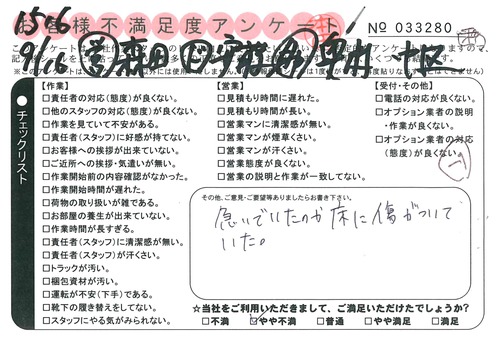 お客様不満足度アンケート
№ 033280
チェックリスト
【作業】
□責任者の対応(態度)が良くない。
□他のスタッフの対応(態度)が良くない。
□作業を見ていて不安がある。
□責任者(スタッフ)に好感が持てない。
□お客様への挨拶が出来ていない。
□ご近所への挨拶・気遣いが無い。
□作業開始前の内容確認がなかった。
□作業開始時間が遅れた。
□荷物の取り扱いが雑である。
□お部屋の養生が出来ていない。
□作業時間が長すぎる。
□責任者(スタッフ)に清潔感が無い。
□責任者(スタッフ)が汗くさい。
□トラックが汚い。
□梱包資材が汚い。
□運転が不安(下手)である。
□靴下の履き替えをしてない。
□スタッフにやる気がみられない。
【営業】
□見積もり時間に遅れた。
□見積もり時間が長い。
□営業マンに清潔感が無い。
□営業マンが煙草くさい。
□営業マンが汗くさい。
□営業態度が良くない。
□営業の説明と作業が一致してない。
【受付・その他】
□電話の対応が良くない。
□オプション業者の説明
・作業が良くない。
□オプション業者の対応
(態度)が良くない。
その他、ご意見・ご要望等ありましたらお書き下さい。
急いでいたのか床に傷がついて
いた。
☆当社をご利用いただきまして、ご満足いただけたでしょうか?
□不満 ☑やや不満 □普通 □やや満足 □満足